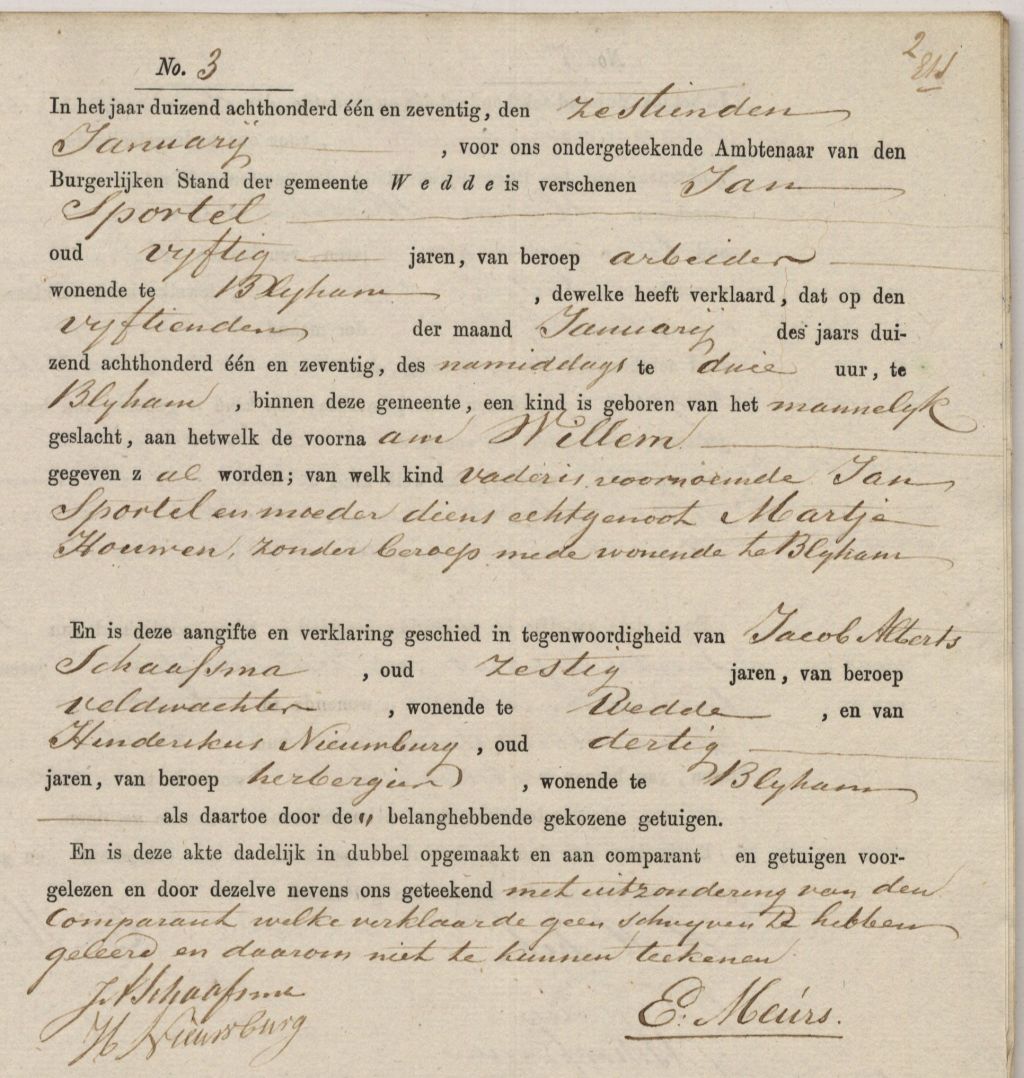 No. 3
2
In het jaar duizend achthonderd één en zeventig, den zestienden
Januarij , voor ons ondergeteekende Ambtenaar van den
Burgerlijken Stand der gemeente Wedde is verschenen Jan
Sportel
oud vyftig jaren, van beroep arbeider
wonende te Blyham , dewelke heeft verklaard, dat op den
vyftienden der maand Januarij des jaars dui-
zend achthonderd één en zeventig, des namiddags te drie uur, te
Blyham , binnen deze gemeente, een kind is geboren van het mannelyk
geslacht, aan hetwelk de voornaam Willem
gegeven zal worden; van welk kind vader is voornoemde Jan
Sportel en moeder diens echtgenoot Martje
Houwen, zonder beroep mede wonende te Blyham
En is deze aangifte en verklaring geschied in tegenwoordigheid van Jacob Alberts
Schaafsma , oud zestig jaren, van beroep
veldwachter , wonende te Wedde , en van
Hinderikus Nieumburg , oud dertig
jaren, van beroep herbergier , wonende te Blyham
als daartoe door de " belanghebbende gekozene getuigen.
En is deze akte dadelijk in dubbel opgemaakt en aan comparant en getuigen voor-
gelezen en door dezelve nevens ons geteekend met uitzondering van den
Comparant welke verklaarde geen schryven te hebben
geleerd en daarom niet te kunnen teekenen
J. A Schaafsma
H Nieuwburg
E. Meurs.